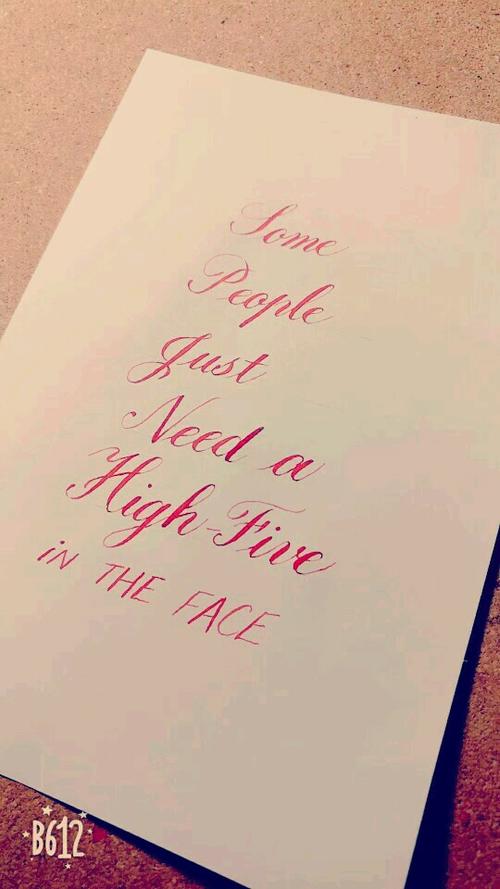 Some
People
Just
Need a
High-Five
iN THE FACE
B612